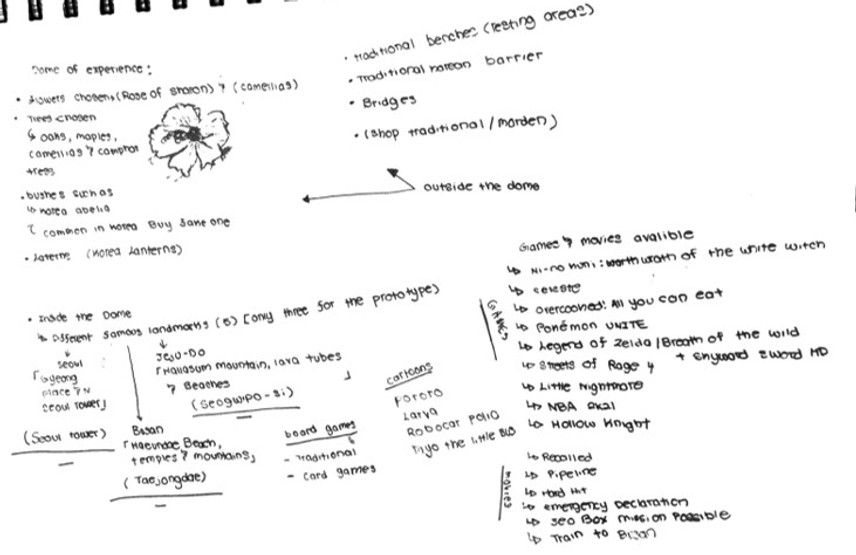 Dome of experience:
• flowers chosen (Rose of sharon) & (camellias)
• Trees chosen
↳ oaks, maples,
camellias & camphor
trees
• bushes such as
↳ korea abelia
common in korea Buy same one
• laterns (korea lanterns)
• traditional benches (resting areas)
• Traditional korean barrier
• Bridges
• (shop traditional / marden)
outside the dome
• Inside the Dome
↳ Different famous landmarks (5) [only three for the prototype)
seoul
place & N
seoul tower
(Seoul tower)
Busan
Haeundae Beach,
temples & mountains
(Taejongdae)
Jeju-Do
Hallasum mountain, lava tubes
& Beaches
(Seogwipo-si)
board games
- Traditional
- card games
cartoons
Pororo
Larva
Robocar Polio
Tayo the little Bus
Games & movies avalible
GAMES
↳ Ni-no kuni: wrath of the white witch
↳ celeste
↳ overcooked: All you can eat
↳ Pokémon UNITE
↳ Legend of Zelda / Breath of the wild
+ skyward sword HD
↳ Streets of Rage 4
↳ Little Nightmare
↳ NBA 2K21
↳ Hollow Knight
movies
↳ Recalled
↳ Pipeline
↳ Hard Hit
↳ emergency Declaration
↳ seo Box mission Possible
↳ Train to Busan